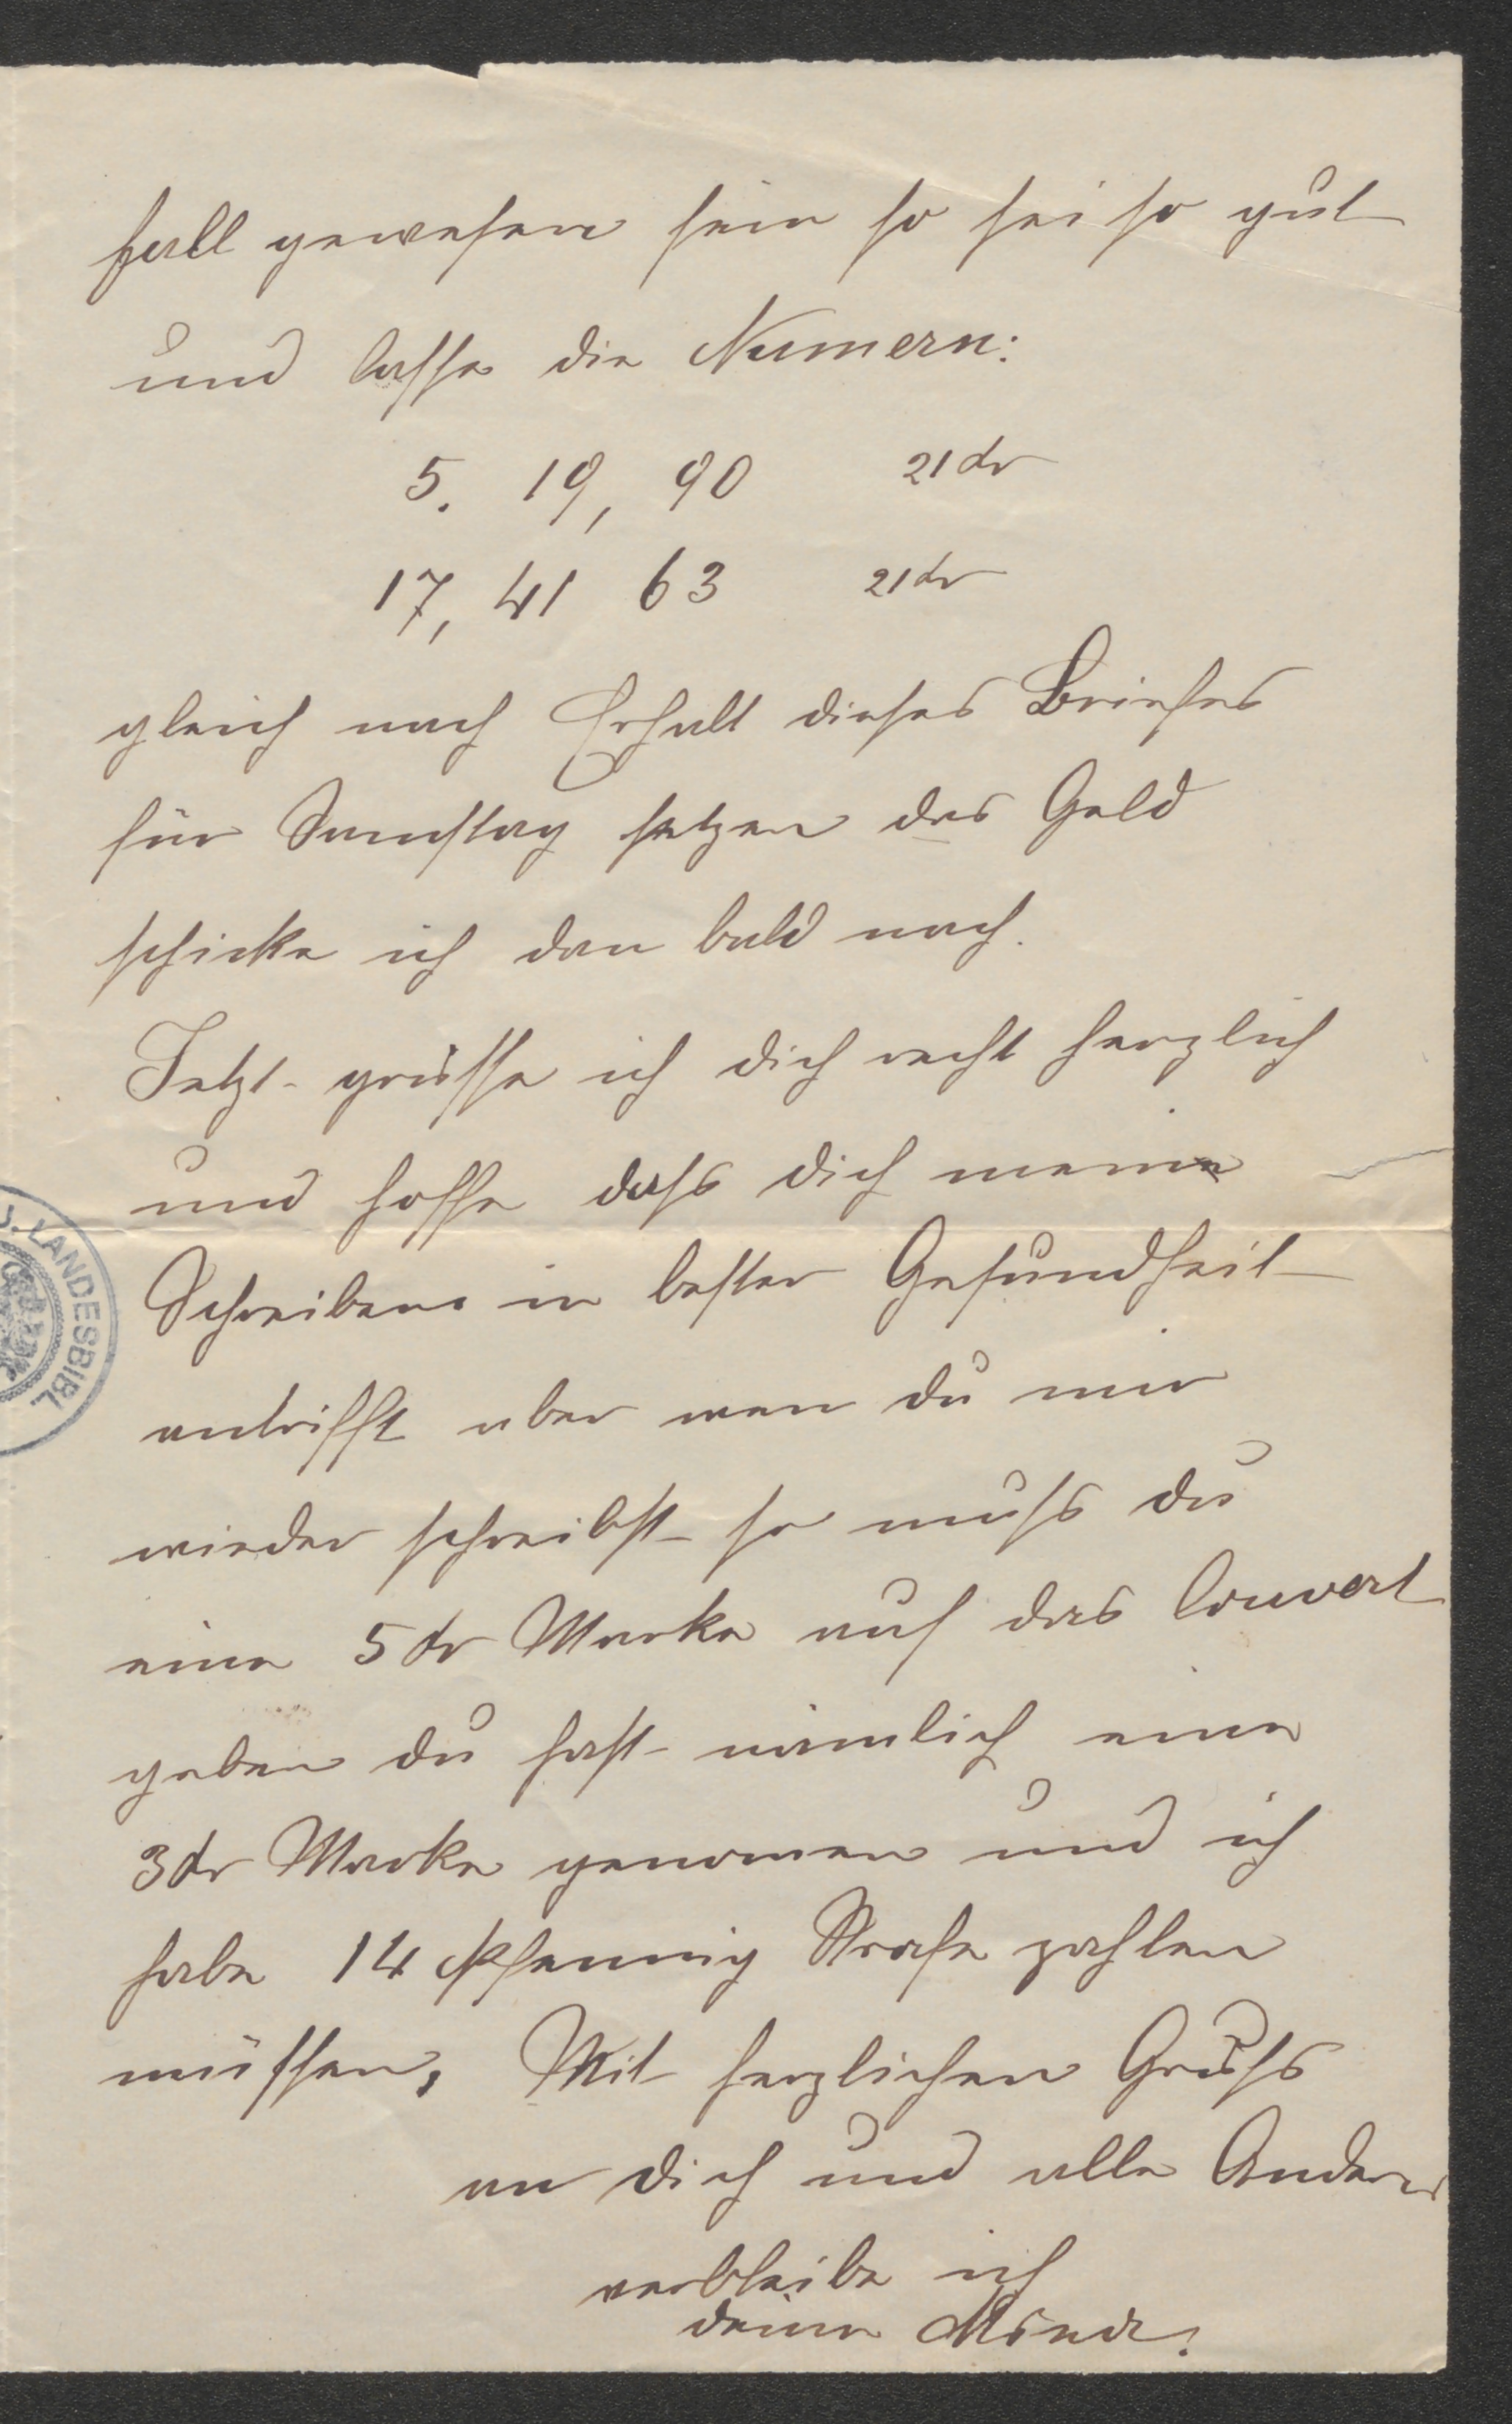 fall gewesen sein so sei so gut
und lasse die Numern:
5. 19, 90 21 kr
17, 41 63 21 kr
gleich nach Erhalt dieses Briefes
für Samstag setzen das Geld
schicke ich dan bald nach.
Jetzt grüsse ich dich recht herzlich
und hoffe dass dich meine
Schreiben in bester Gesundheit
antrifft aber wen du mir
wieder schreibst so muss du
eine 5 kr Marke auf das Couvert
geben du hast nämlich eine
3 kr Marke genomen und ich
habe 14 Pfennig Strafe zahlen
müssen, Mit herzlichen Gruss
an dich und alle Andern
verbleibe ich
deine
J. LANDESBIBL